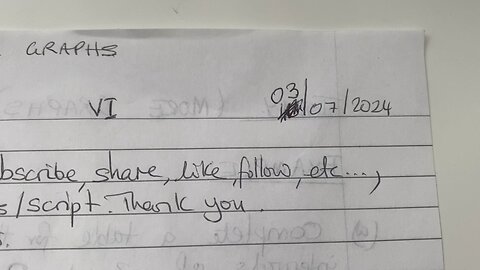 GRAPHS
VI 03/07/2024
bscribe, share, like, follow, etc...,
s/script. Thank you.
s.